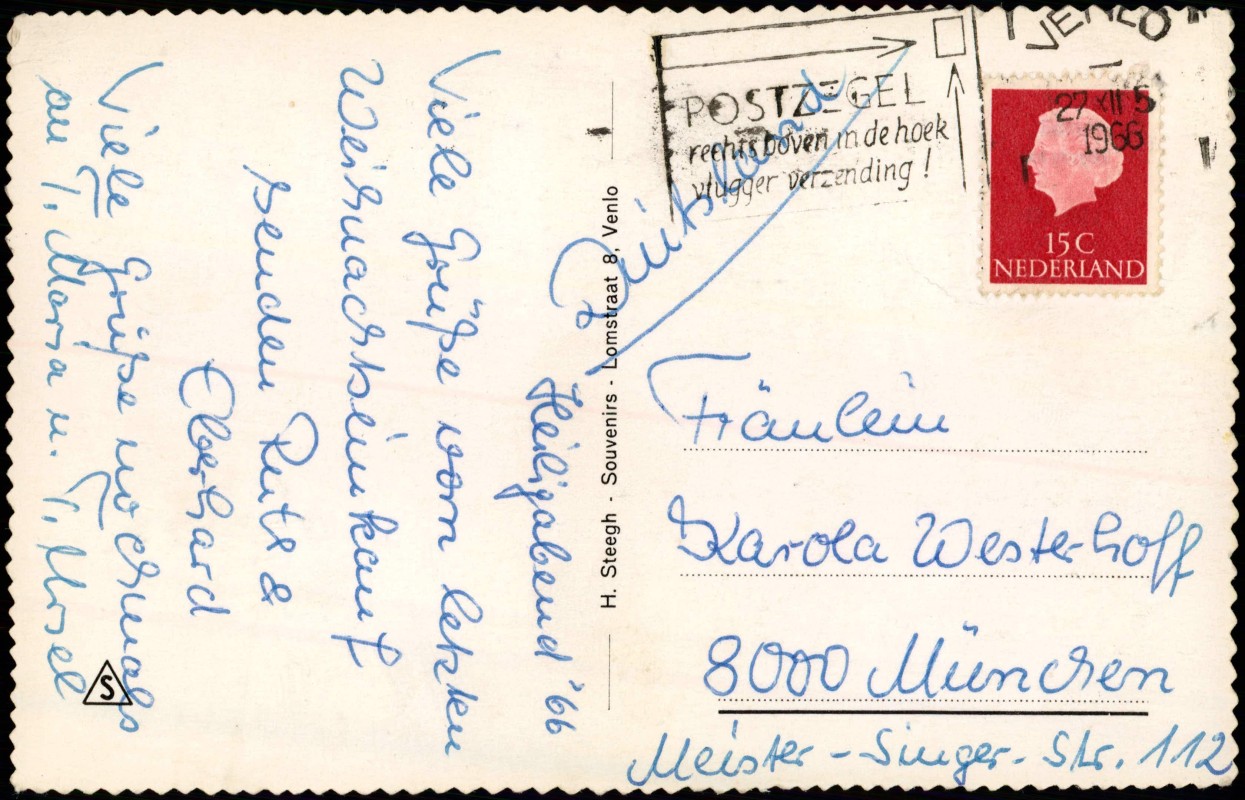 Heiligabend '66
Viele Grüße vom letzten
Weihnachtseinkauf
senden Ruth &
Eberhard
Viele Grüße nochmals
an T. Maria u. T. Ursel
S
H. Steegh - Souvenirs - Lomstraat 8, Venlo
VENLO
27 XII 5
1966
POSTZEGEL
rechts boven in de hoek
vlugger verzending!
15C
NEDERLAND
Deutschland
Fräulein
Karola Westerhoff
8000 München
Meister-Singer-Str. 112